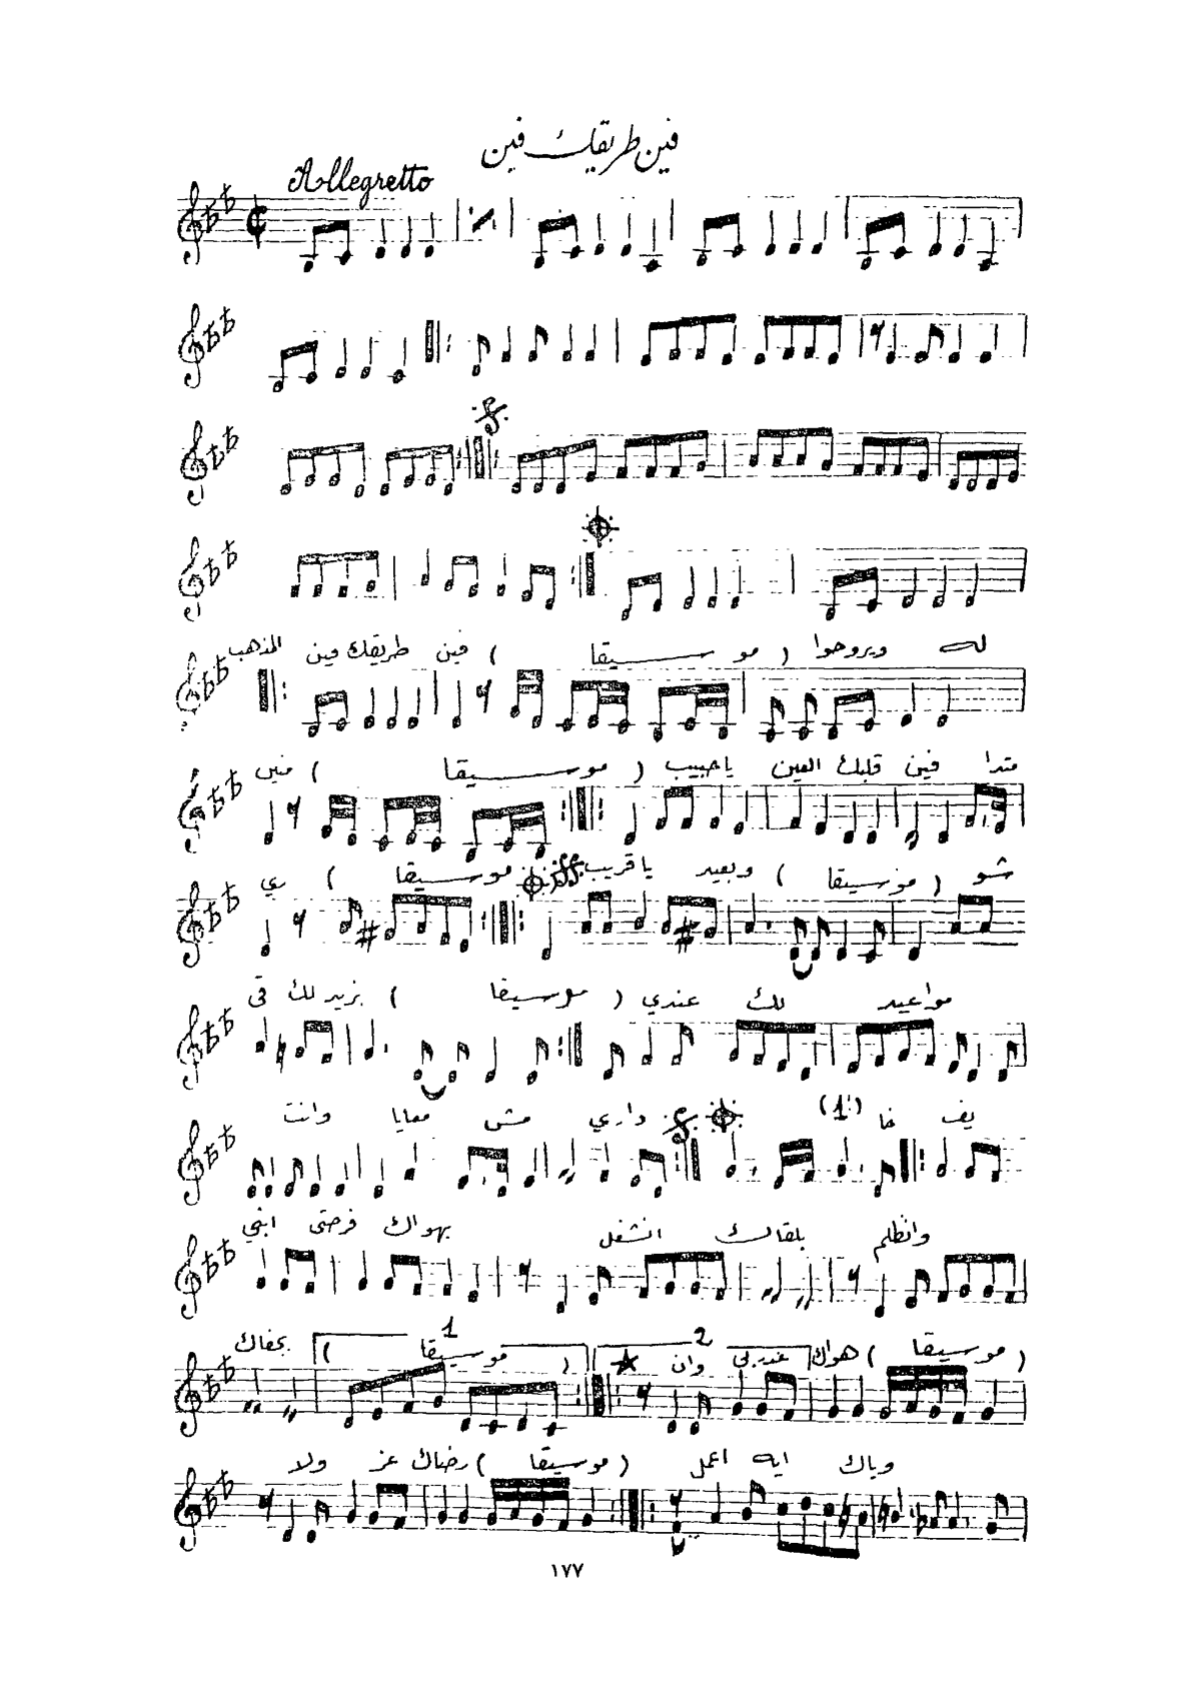 فين طريقك فين
Allegretto
المذهب فين طريقك فين ( موسيقا ) ويروحوا له
منين ( موسيقا ) يا حبيب العين قلبك فين متدا
ري ( موسيقا ) يا قريب وبعيد ( موسيقا ) شو
قي بزيد لك ( موسيقا ) عندي لك مواعيد
وانت معايا مش داري (1) خا يف
ابني فرحتى بهواك انشغل بلقاك وانظلم
بجفاك 1 ( موسيقا ) 2 وان عذبي هواك ( موسيقا )
ولا عز رضاك ( موسيقا ) اعمل ايه وياك
١٧٧